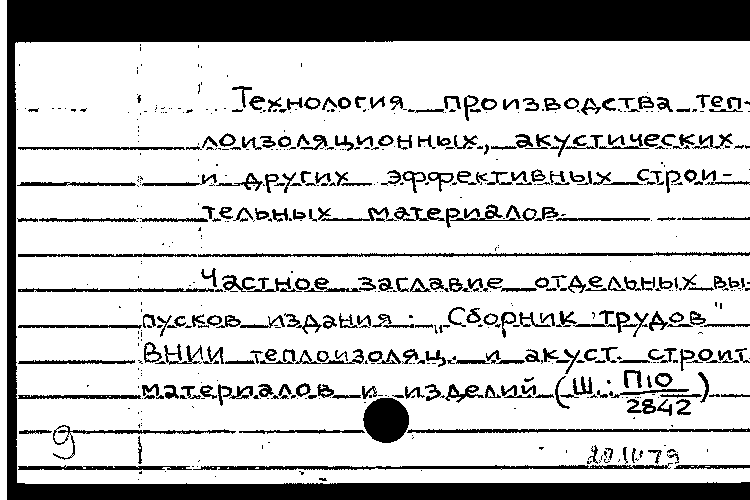 Технология производства теп-
лоизоляционных, акустических
и других эффективных строи-
тельных материалов.
Частное заглавие отдельных вы-
пусков издания: „Сборник трудов"
ВНИИ теплоизоляц. и акуст. строит
материалов и изделий (Ш.: П10/2842)
9